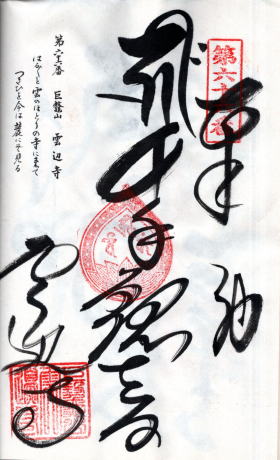 第六十六番
奉納
千手観世音
第六十六番 巨鼇山 雲辺寺
はる〲と雲のほとりの寺に来て
つきひを今は麓にぞ見る
雲辺寺